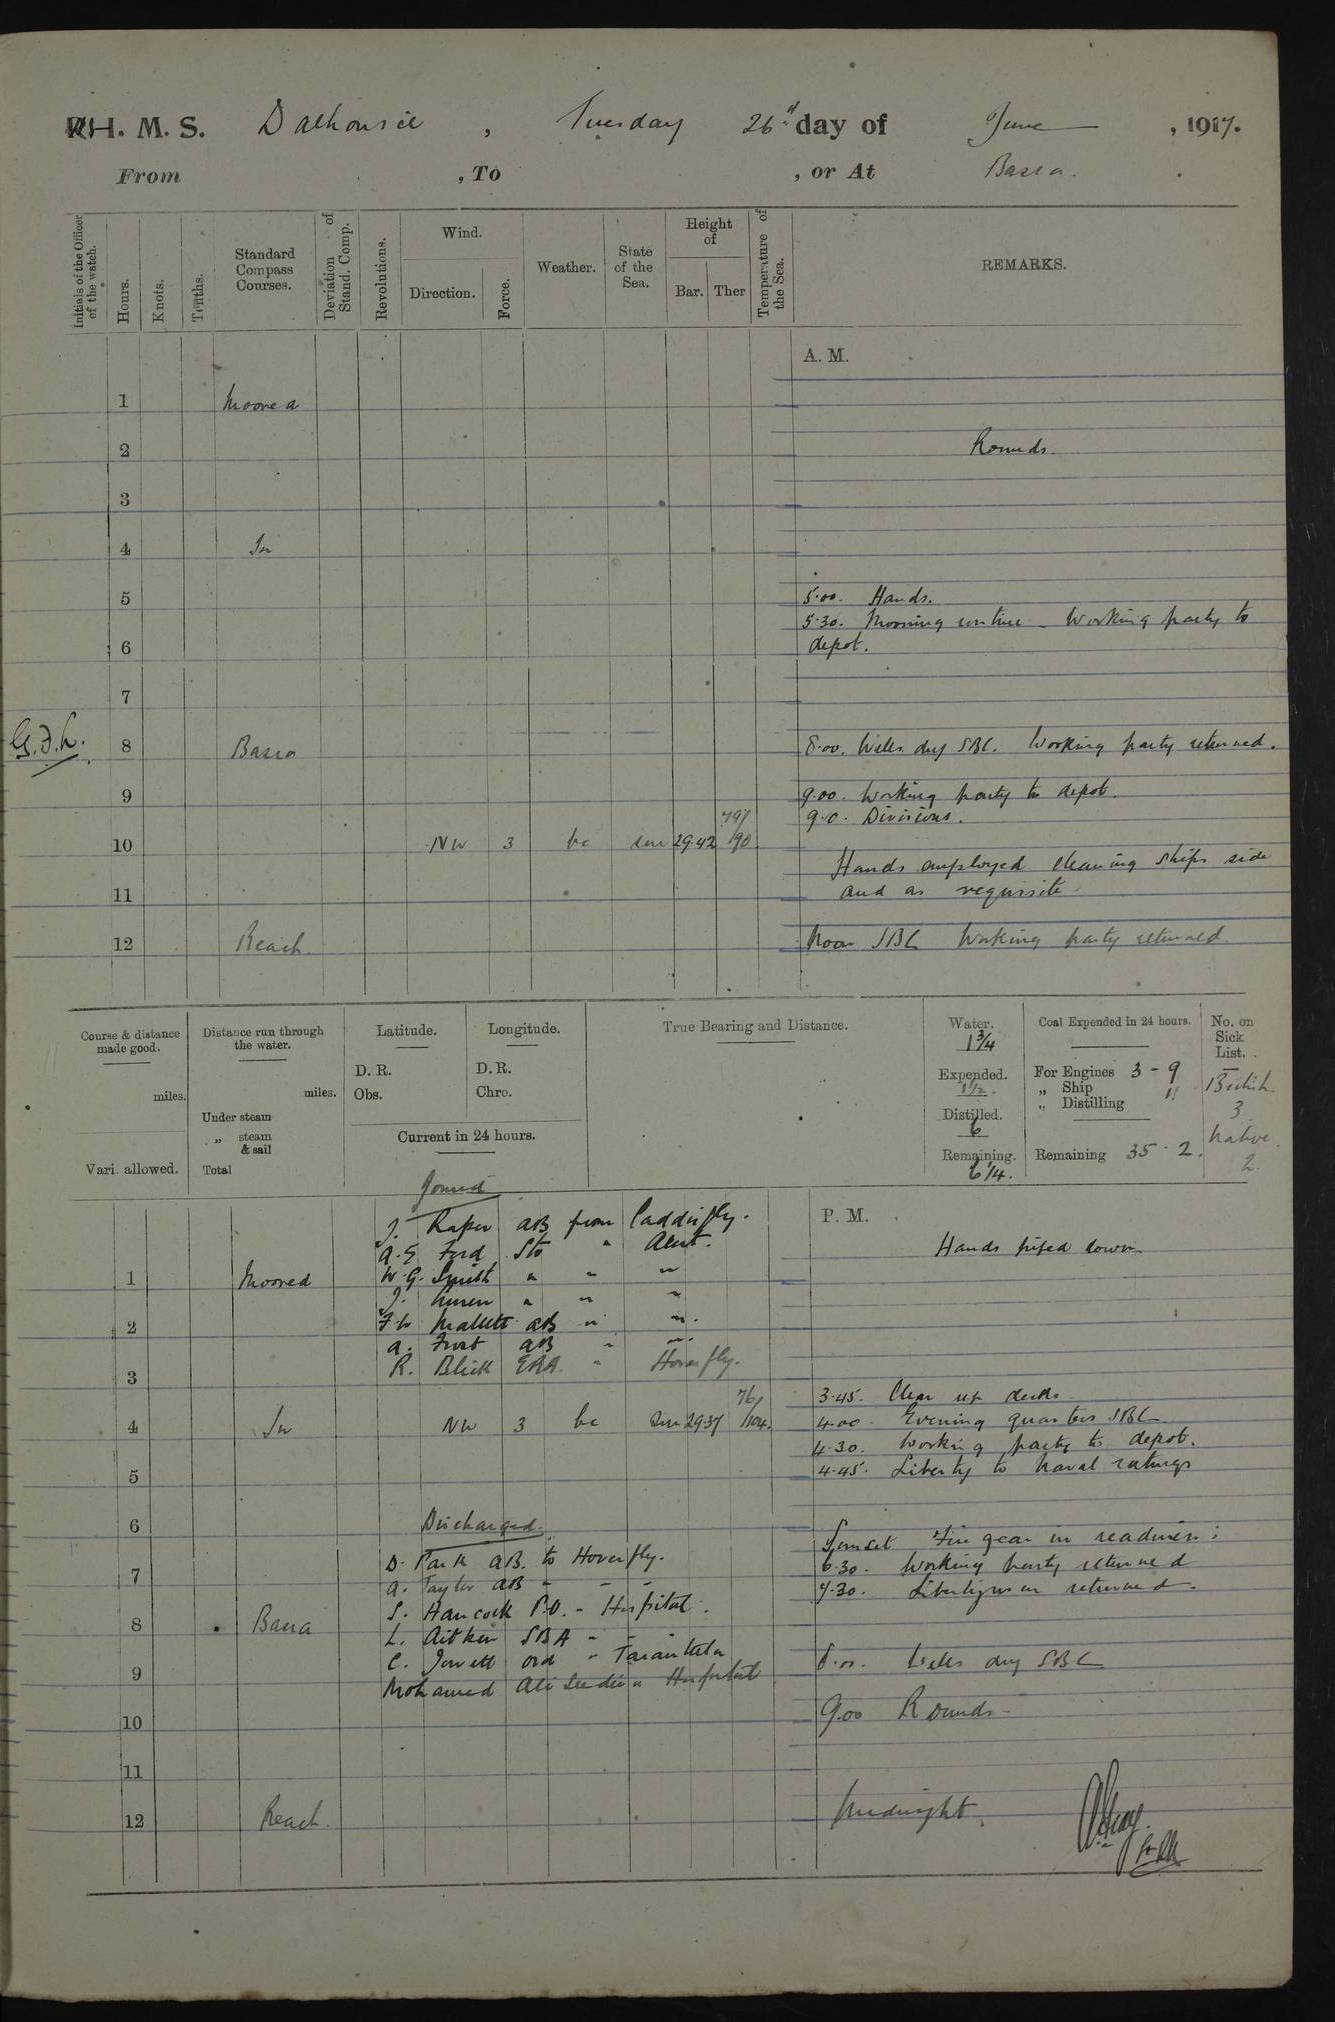 H. M. S. Dalhousie, Tuesday 26th day of June, 1917.
From , To , or At Basra.
Initials of the Officer of the watch.
Hours.
Knots.
Tenths.
Standard Compass Courses.
Deviation of Stand. Comp.
Revolutions.
Wind.
Direction.
Force.
Weather.
State of the Sea.
Height of
Bar. Ther
Temperature of the Sea.
REMARKS.
A. M.
1 Moored
2 Rounds.
3
4 In
5 5.00. Hands.
5.30. Morning routine - Working party to
6 depot.
7
G.F.L. 8 Basra 8.00. Wells dry SBC. Working party returned.
9 9.00. Working party to depot.
9.0. Divisions.
10 NW 3 bc sm 29.42 79/90
Hands employed cleaning ships side
11 and as requisite
12 Reach. Noon SBC Working party returned
Course & distance made good.
miles.
Vari. allowed.
Distance run through the water.
miles.
Under steam
„ steam & sail
Total
Latitude.
D. R.
Obs.
Longitude.
D. R.
Chro.
Current in 24 hours.
True Bearing and Distance.
Water.
1 3/4
Expended.
1 1/2.
Distilled.
6
Remaining.
6 1/4.
Coal Expended in 24 hours.
For Engines 3 - 9
„ Ship
„ Distilling "
Remaining 35 - 2.
No. on Sick List.
British
3
Native
2
Joined
P. M.
J. Raper AB from Caddisfly.
A.E Ford Sto " Alert.
Hands piped down
1 Moored W.G. Smith " " "
J. " " "
2 F W Mallett AB " "
A. Frost AB " "
3 R. Blick ERA. " Hoverfly.
3.45. Clear up decks
4 In NW 3 bc Sm 29.37 76/104. 4.00. Evening quarters SBC
4.30. Working party to depot.
5 4.45. Liberty to Naval ratings
6 Discharged.
Sunset Fire gear in readiness;
D. Park AB. to Hoverfly. 6.30. Working party returned
7 A. Taylor AB - - - 7.30. Libertymen returned.
S. Hancock P.O. - Hospital.
8 Basra L. Aitken SBA - -
C. Jowett ord - Tarantula 8.00. Wells dry SBC
9 Mohamed Ali Seedie " Hospital
9.00 Rounds
10
11
12 Reach Midnight.